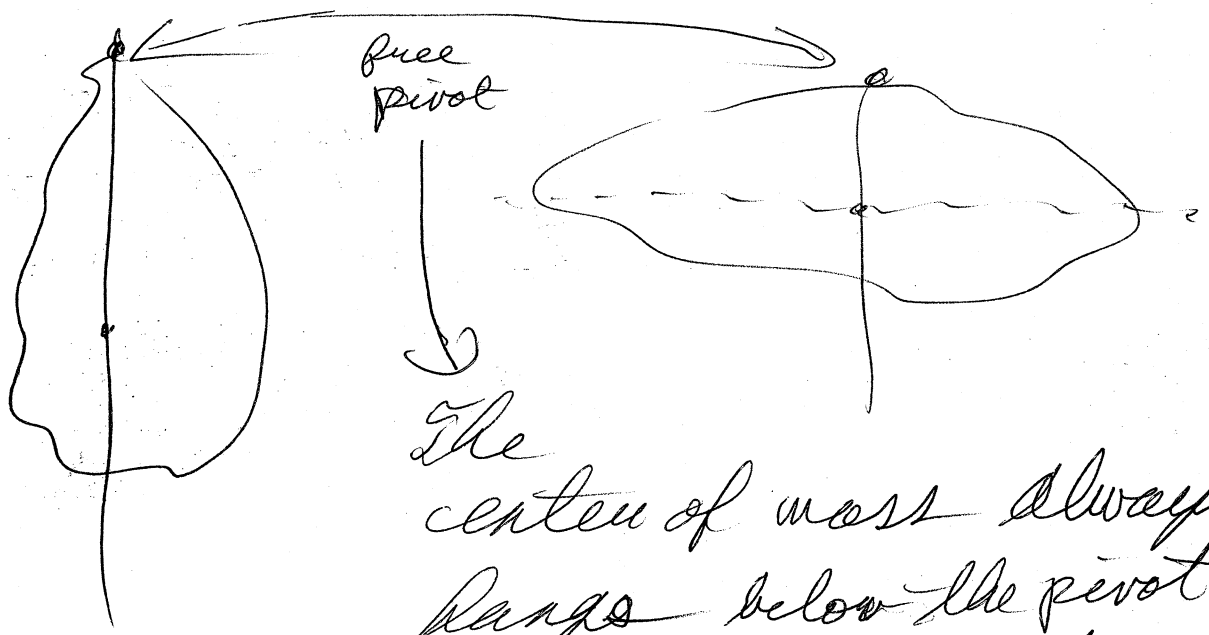 free
pivot
The
center of mass always
hangs below the pivot